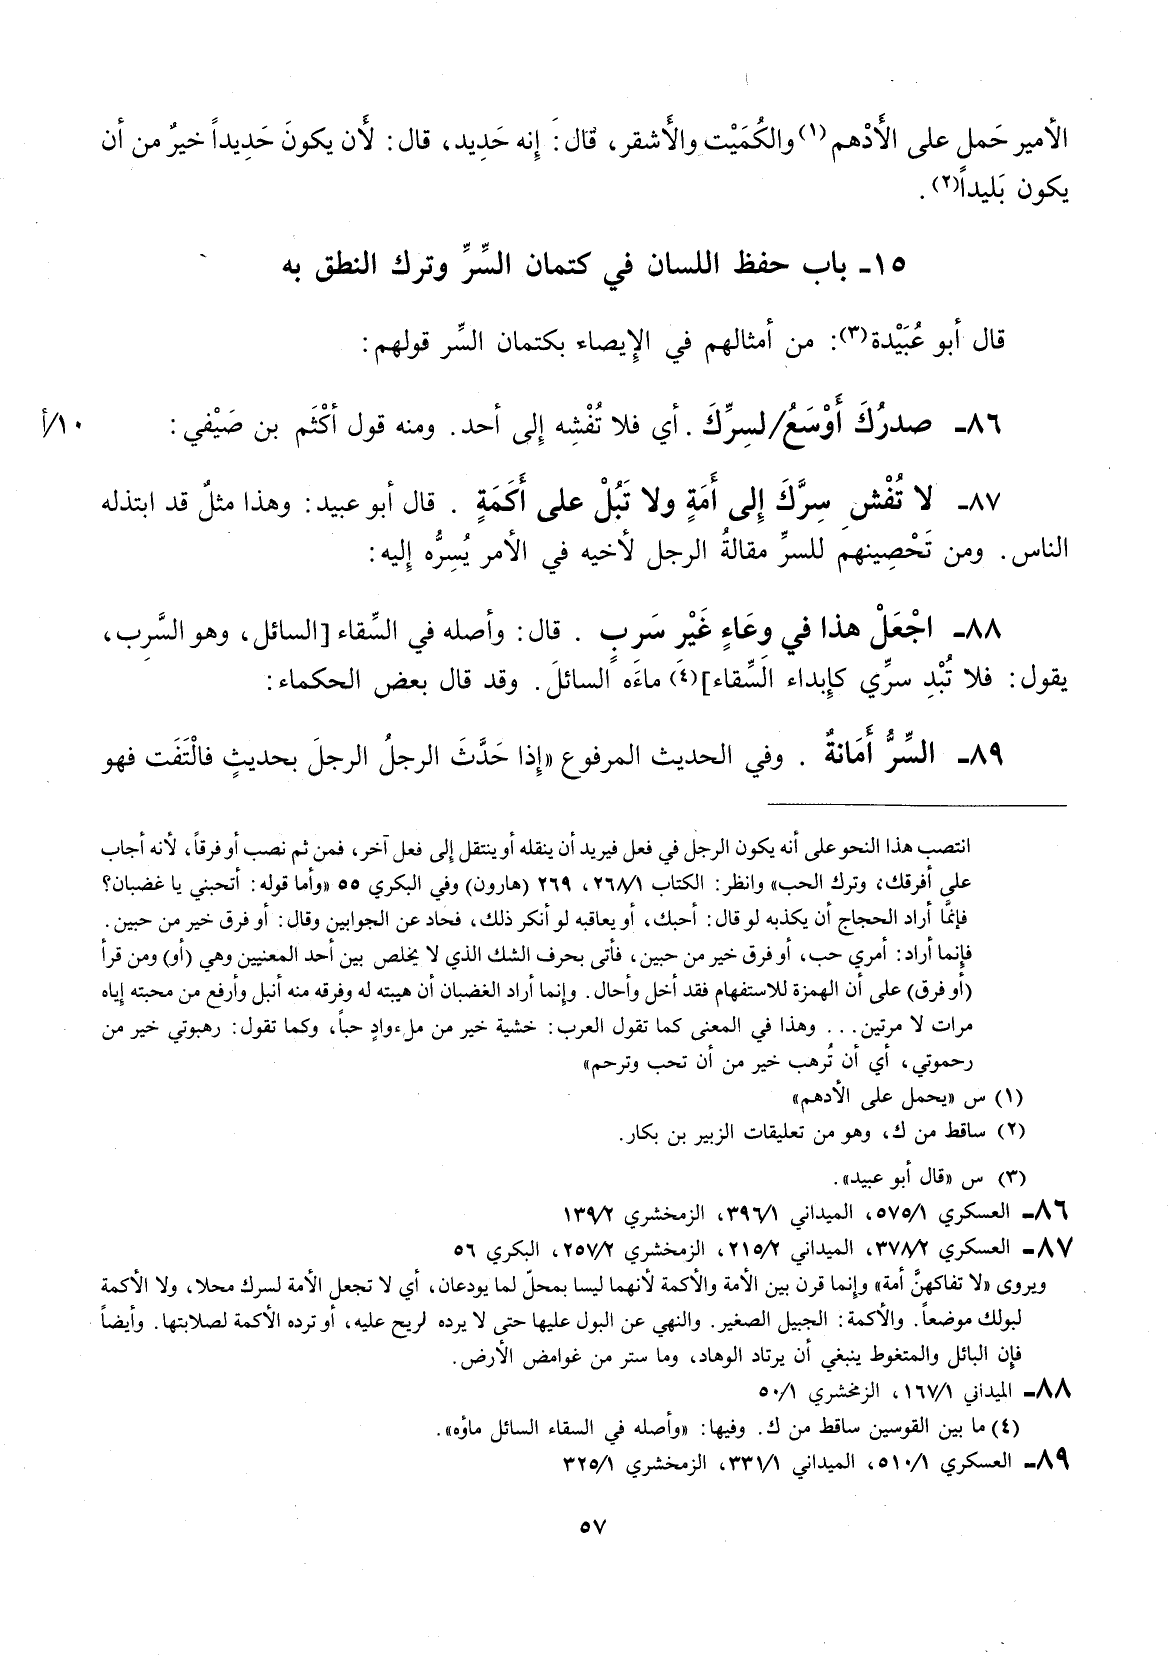 الأمير حَمل على الأَدْهم(١) والكُمَيْت والأَشقر، قَال: إنه حَدِيد، قال: لَأن يكونَ حَدِيداً خيرٌ من أن
يكون بَليداً(٢).
١٥ـ باب حفظ اللسان في كتمان السِّرِّ وترك النطق به
قال أبو عُبَيْدة(٣): من أمثالهم في الإيصاء بكتمان السِّر قولهم:
٨٦ـ صدرُكَ أَوْسَعُ/لسِرِّكَ . أي فلا تُفْشِه إلى أحد. ومنه قول أكْثَم بن صَيْفي: ١٠/أ
٨٧ـ لا تُفْشِ سِرَّكَ إلى أَمَةٍ ولا تَبُلْ على أَكَمَةٍ . قال أبو عبيد: وهذا مثلٌ قد ابتذله
الناس. ومن تَحْصِينهم للسرِّ مقالةُ الرجل لأخيه في الأمر يُسِرُّه إليه:
٨٨ـ اجْعَلْ هذا في وِعَاءٍ غَيْرِ سَرِبٍ . قال: وأصله في السِّقاء [السائل، وهو السَّرِب،
يقول: فلا تُبْدِ سرِّي كإبداء السِّقاء](٤) ماءَه السائلَ. وقد قال بعض الحكماء:
٨٩ـ السِّرُّ أَمَانةٌ . وفي الحديث المرفوع «إذا حَدَّثَ الرجلُ الرجلَ بحديثٍ فالْتَفَت فهو
انتصب هذا النحو على أنه يكون الرجل في فعل فيريد أن ينقله أو ينتقل إلى فعل آخر، فمن ثم نصب أو فرقاً، لأنه أجاب
على أفرقك، وترك الحب» وانظر: الكتاب ٢٦٨/١، ٢٦٩ (هارون) وفي البكري ٥٥ «وأما قوله: أتحبني يا غضبان؟
فإنمَّا أراد الحجاج أن يكذبه لو قال: أحبك، أو يعاقبه لو أنكر ذلك، فحاد عن الجوابين وقال: أو فرق خير من حبين.
فإنما أراد: أمري حب، أو فرق خير من حبين، فأتى بحرف الشك الذي لا يخلص بين أحد المعنيين وهي (أو) ومن قرأ
(أو فرق) على أن الهمزة للاستفهام فقد أخل وأحال. وإنما أراد الغضبان أن هيبته له وفرقه منه أنبل وأرفع من محبته إياه
مرات لا مرتين... وهذا في المعنى كما تقول العرب: خشية خير من ملء وادٍ حباً، وكما تقول: رهبوتي خير من
رحموتي، أي أن تُرهب خير من أن تحب وترحم»
(١) س «يحمل على الأدهم»
(٢) ساقط من ك، وهو من تعليقات الزبير بن بكار.
(٣) س «قال أبو عبيد».
٨٦ـ العسكري ٥٧٥/١، الميداني ٣٩٦/١، الزمخشري ١٣٩/٢
٨٧ـ العسكري ٣٧٨/٢، الميداني ٢١٥/٢، الزمخشري ٢٥٧/٢، البكري ٥٦
ويروى «لا تفاكهنَّ أمة» وإنما قرن بين الأمة والأكمة لأنهما ليسا بمحلّ لما يودعان، أي لا تجعل الأمة لسرك محلا، ولا الأكمة
لبولك موضعاً. والأكمة: الجبيل الصغير. والنهي عن البول عليها حتى لا يرده لريح عليه، أو ترده الأكمة لصلابتها. وأيضاً
فإن البائل والمتغوط ينبغي أن يرتاد الوهاد، وما ستر من غوامض الأرض.
٨٨ـ الميداني ١٦٧/١، الزمخشري ٥٠/١
(٤) ما بين القوسين ساقط من ك. وفيها: «وأصله في السقاء السائل ماؤه».
٨٩ـ العسكري ٥١٠/١، الميداني ٣٣١/١، الزمخشري ٣٢٥/١
٥٧